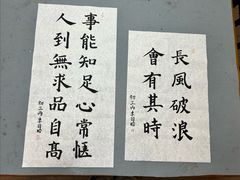 事能知足心常愜
人到無求品自高
初三
長風破浪
會有其時
初三